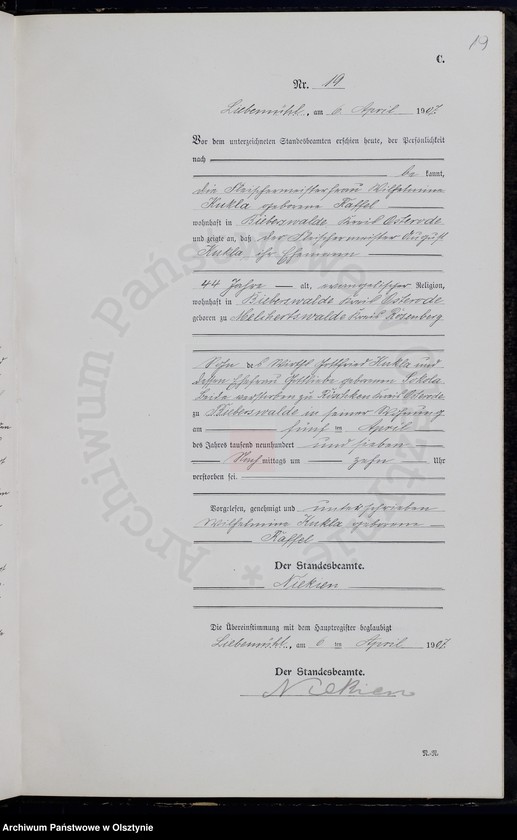 19
C.
Nr. 19
Liebemühl, am 6 April 1907.
Vor dem unterzeichneten Standesbeamten erschien heute, der Persönlichkeit
nach
be kannt,
die Fleischermeisterfrau Wilhelmine
Kukla geborene Kaffel
wohnhaft in Bieberswalde Kreis Osterode
und zeigte an, daß der Fleischermeister August
Kukla ihr Ehemann
44 Jahre alt, evangelischer Religion,
wohnhaft in Bieberswalde Kreis Osterode
geboren zu Melchertswalde Kreis Rosenberg
Sohn des Wirths Gottfried Kukla und
dessen Ehefrau Gottliebe geborenen
beide verstorben zu Kreis Osterode
zu Bieberswalde in seiner Wohnung
am fünf ten April
des Jahres tausend neunhundert und sieben
Nach mittags um zehn Uhr
verstorben sei.
Vorgelesen, genehmigt und unterschrieben
Wilhelmine Kukla, geborene
Kaffel
Der Standesbeamte.
Nickien
Die Übereinstimmung mit dem Hauptregister beglaubigt
Liebemühl, am 6 ten April 1907.
Der Standesbeamte.
Nickien
Archiwum Państwowe w Olsztynie
Archiwum Państwowe w Olsztynie *